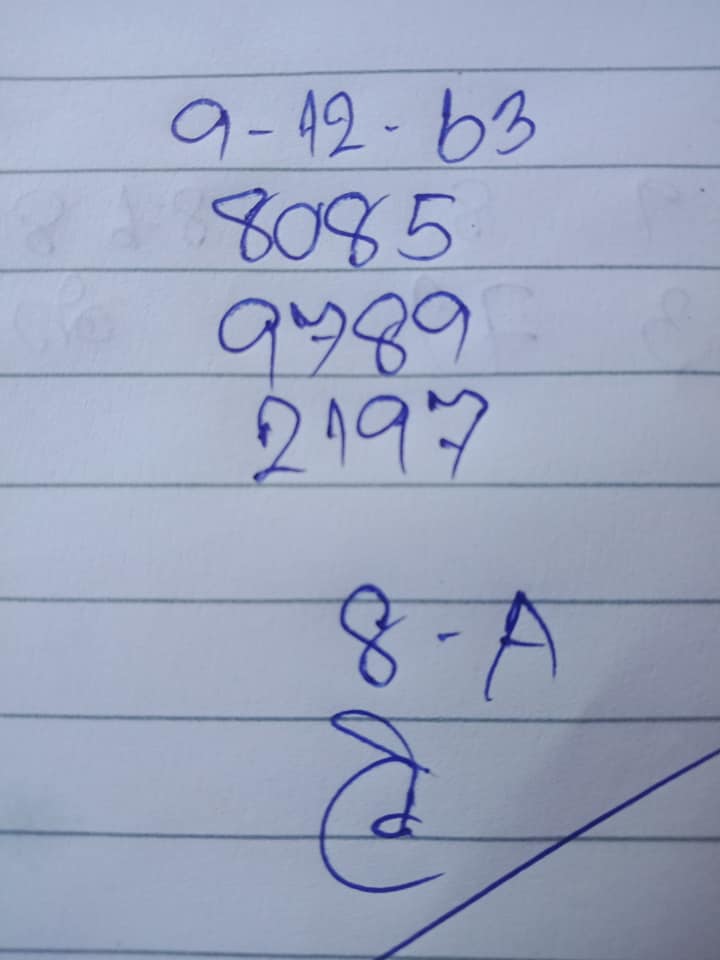 9-12-63
8085
9789
2197
8-A